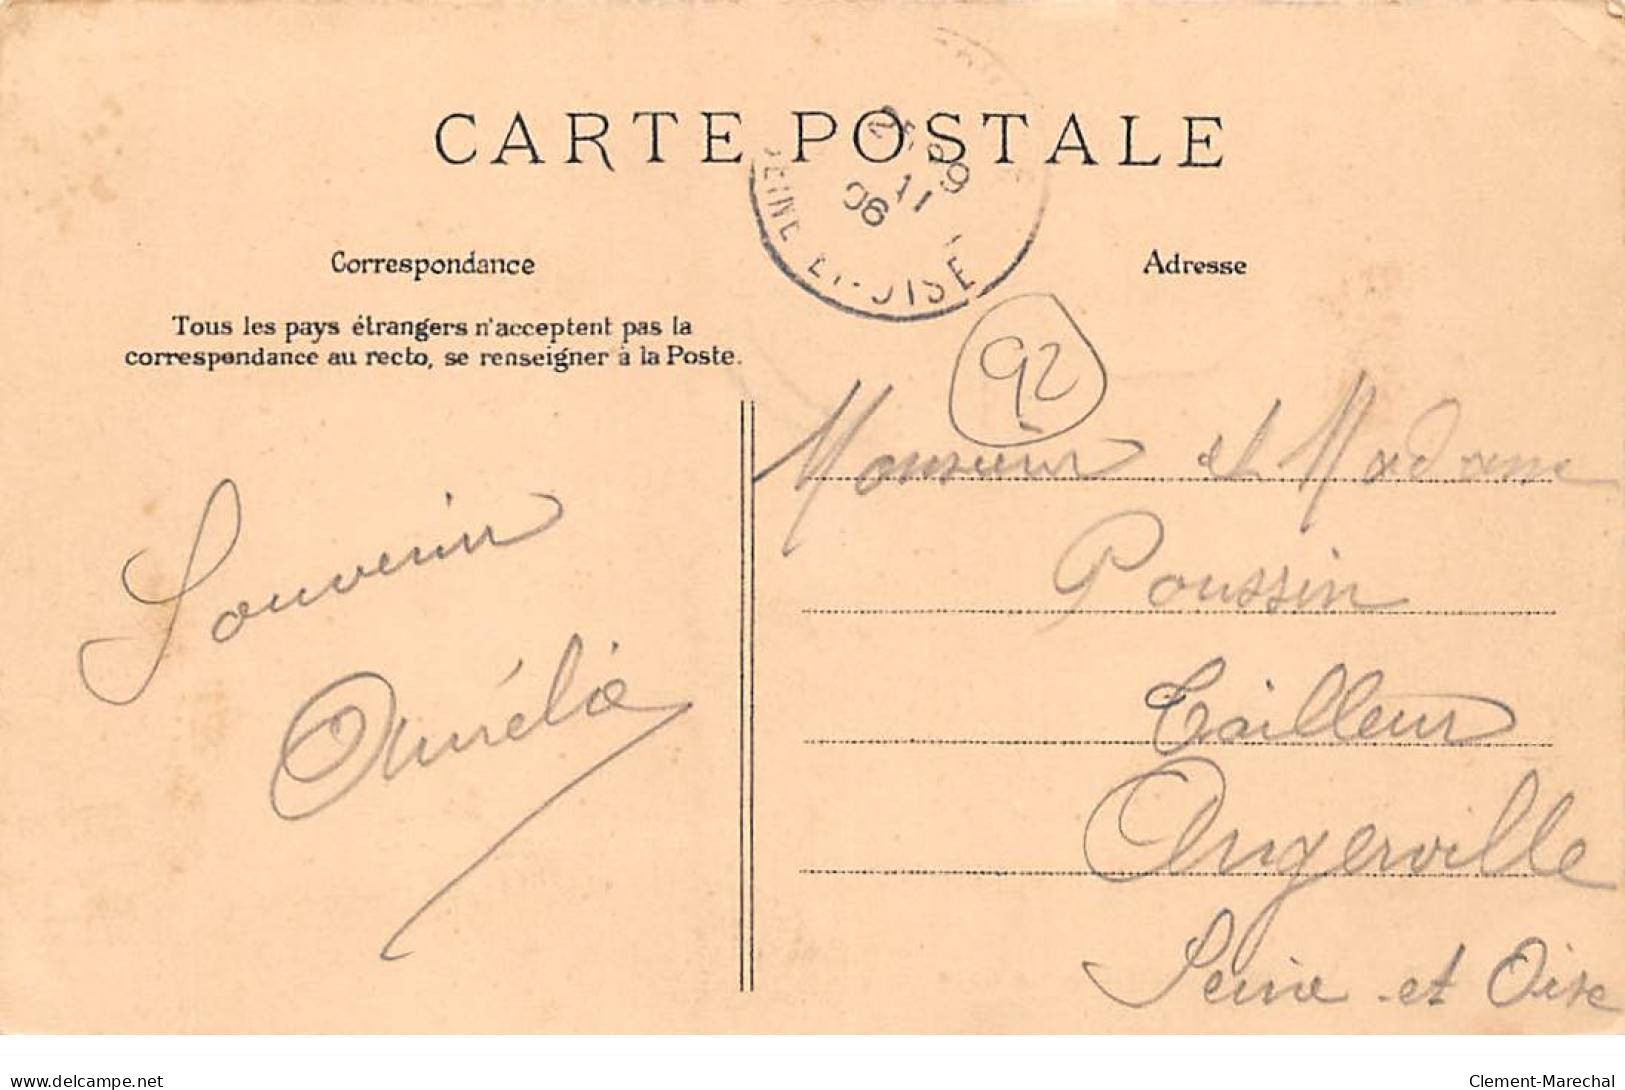 CARTE POSTALE
11
9
06
SEINE-ET-OISE
Correspondance
Tous les pays étrangers n'acceptent pas la
correspondance au recto, se renseigner à la Poste.
Souvenir
Aurélie
Adresse
92
Monsieur et Madame
Poussin
Tailleur
Angerville
Seine-et Oise
delcampe.net
Clement-Marechal